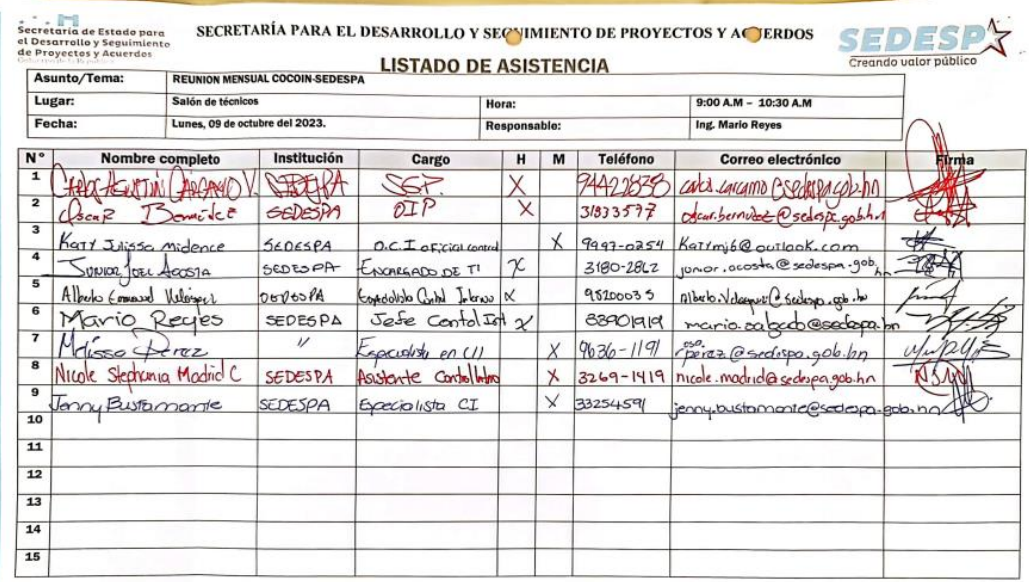 Secretaría de Estado para
el Desarrollo y Seguimiento
de Proyectos y Acuerdos
Gobierno de la República
SECRETARÍA PARA EL DESARROLLO Y SEGUIMIENTO DE PROYECTOS Y ACUERDOS
SEDESPA
Creando valor público
LISTADO DE ASISTENCIA
Asunto/Tema: REUNION MENSUAL COCOIN-SEDESPA
Lugar: Salón de técnicos Hora: 9:00 A.M – 10:30 A.M
Fecha: Lunes, 09 de octubre del 2023. Responsable: Ing. Mario Reyes
N° Nombre completo Institución Cargo H M Teléfono Correo electrónico Firma
1 CARLOS AGUSTÍN CÁRCAMO V. SEDESPA SGP. X carlos.carcamo@sedespa.gob.hn
2 Oscar Bermúdez SEDESPA OIP X 31833577 oscar.bermudez@sedespa.gob.hn
3 Katy Julissa Midence SEDESPA O.C.I oficial control X 9997-0254 Katymj6@outlook.com
4 JUNIOR JOEL ACOSTA SEDESPA ENCARGADO DE TI X 3180-2862 junior.acosta@sedespa.gob.hn
5 Alberto Emmanuel Velásquez SEDESPA Especialista Control Interno X 98200035 Alberto.Velasquez@sedespa.gob.hn
6 Mario Reyes SEDESPA Jefe Control Int X 88901919 mario.salgado@sedespa.hn
7 Melissa Pérez " Especialista en CI X 9636-1191 perez@sedespa.gob.hn
8 Nicole Stephania Madrid C SEDESPA Asistente Control Interno X 3269-1419 nicole.madrid@sedespa.gob.hn
9 Jenny Bustamante SEDESPA Especialista CI X 33254591 jenny.bustamante@sedespa.gob.hn
10
11
12
13
14
15